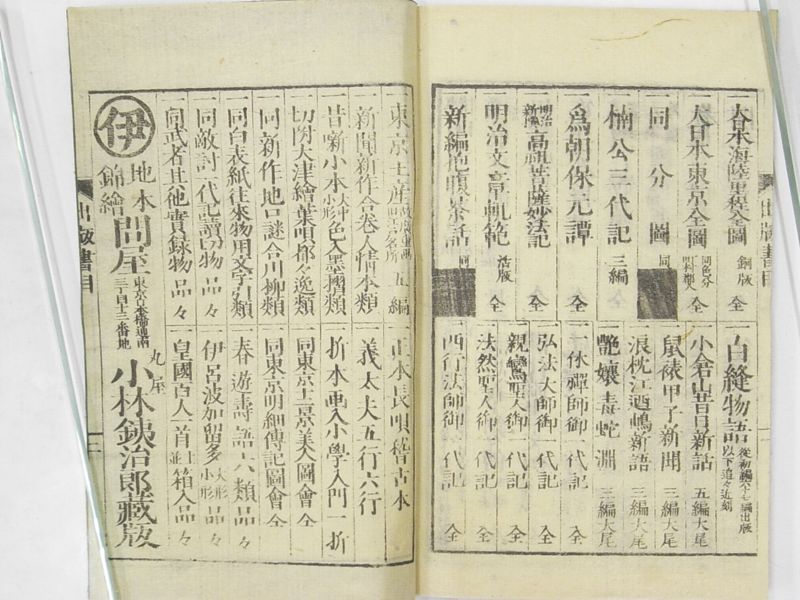 一大日本海陸里程全圖 銅版 全
一大日本東京全圖 同色分 全
一同分圖 同
一楠公三代記 三編
一爲朝保元譚 全
一高祖菩薩妙法記 全
一明治文章軌範 活版 全
一新編的面茶話 同
一白縫物語 以下追々近刻
一小倉山昔日新話 五編大尾
一鼠裱甲子新聞 三編大尾
一浪枕江廼嶋新語 三編大尾
一艶嬢毒蛇淵 三編大尾
一一休禪師御一代記 全
一弘法大師御一代記 全
一親鸞聖人御一代記 全
一法然聖人御一代記 全
一西行法師御一代記 全
出版書目
一東京土産 五編
一新聞新作合巻人情本類
一昔噺小本 大中小形 色入墨摺類
一切附大津繪葉唄都々逸類
一同新作地口謎合川柳類
一同白表紙往來物用文字引類
一同敵討一代記讀切物品々
一同武者其他實録物品々
一正本長唄稽古本
一義太夫五行六行
一折本画入小學入門一折
一同東京土景美人圖會全
一同東京明細傳記圖會全
一春遊壽語六類品々
一伊呂波加留多 大形小形 品々
一皇國百人一首 上並 箱入品々
伊 地本錦繪 問屋 東京日本橋通南三丁目十三番地
丸屋 小林鉄治郎藏版
出版書目